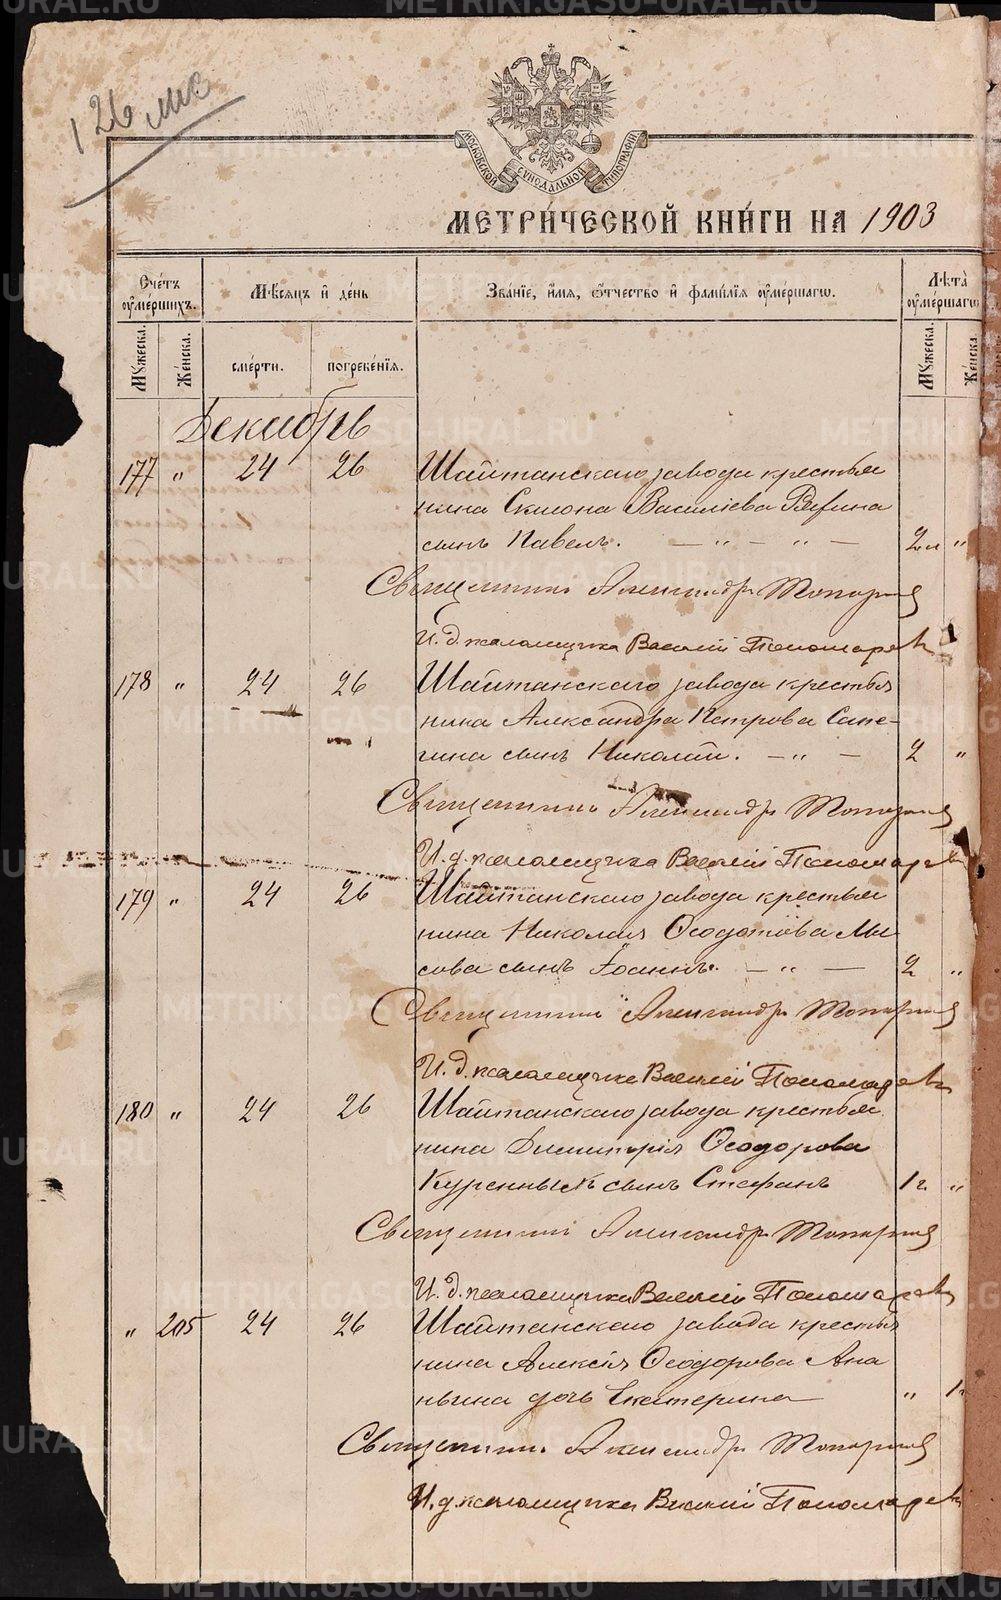 126
МОСКОВСКОЙ СУНОДАЛЬНОЙ ТИПОГРАФІИ
МЕТРИ́ЧЕСКОЙ КНИ́ГИ НА 1903
Сче́тъ ᲂу҆ме́ршихъ.
Мѣ́сяцъ и҆ де́нь
Зва́нїе, и҆́мѧ, ѻ҆́тчество и҆ фами́лїѧ ᲂу҆ме́ршагѡ.
Лѣ́та ᲂу҆ме́ршагѡ
Мꙋжеска.
Же́нска.
сме́рти.
погребе́нїѧ.
Мꙋжеска.
Же́нска.
Декабрь
177 " 24 26 Шайтанскаго завода крестья
нина Симона Василіева
сынъ Павелъ. — " — " — 2 "
Священникъ Александръ Топорковъ
И. д. псаломщика Василій Пономаревъ
178 " 24 26 Шайтанскаго завода крестья
нина Александра Петрова Сапе-
гина сынъ Николай. — " — 2 "
Священникъ Александръ Топорковъ
И. д. псаломщика Василій Пономаревъ
179 " 24 26 Шайтанскаго завода крестья
нина Николая Ѳеодотова Мы
сова сынъ Іоаннъ. — " — 2 "
Священникъ Александръ Топорковъ
И. д. псаломщика Василій Пономаревъ
180 " 24 26 Шайтанскаго завода крестья
нина Димитрія Ѳеодорова
Куренныхъ сынъ Стефанъ 1 г. "
Священникъ Александръ Топорковъ
И. д. псаломщика Василій Пономаревъ
" 205 24 26 Шайтанскаго завода крестья
нина Алексія Ѳеодорова Ана
ньина дочь Екатерина " 1
Священникъ Александръ Топорковъ
И. д. псаломщика Василій Пономаревъ
METRIKI.GASO-URAL.RU